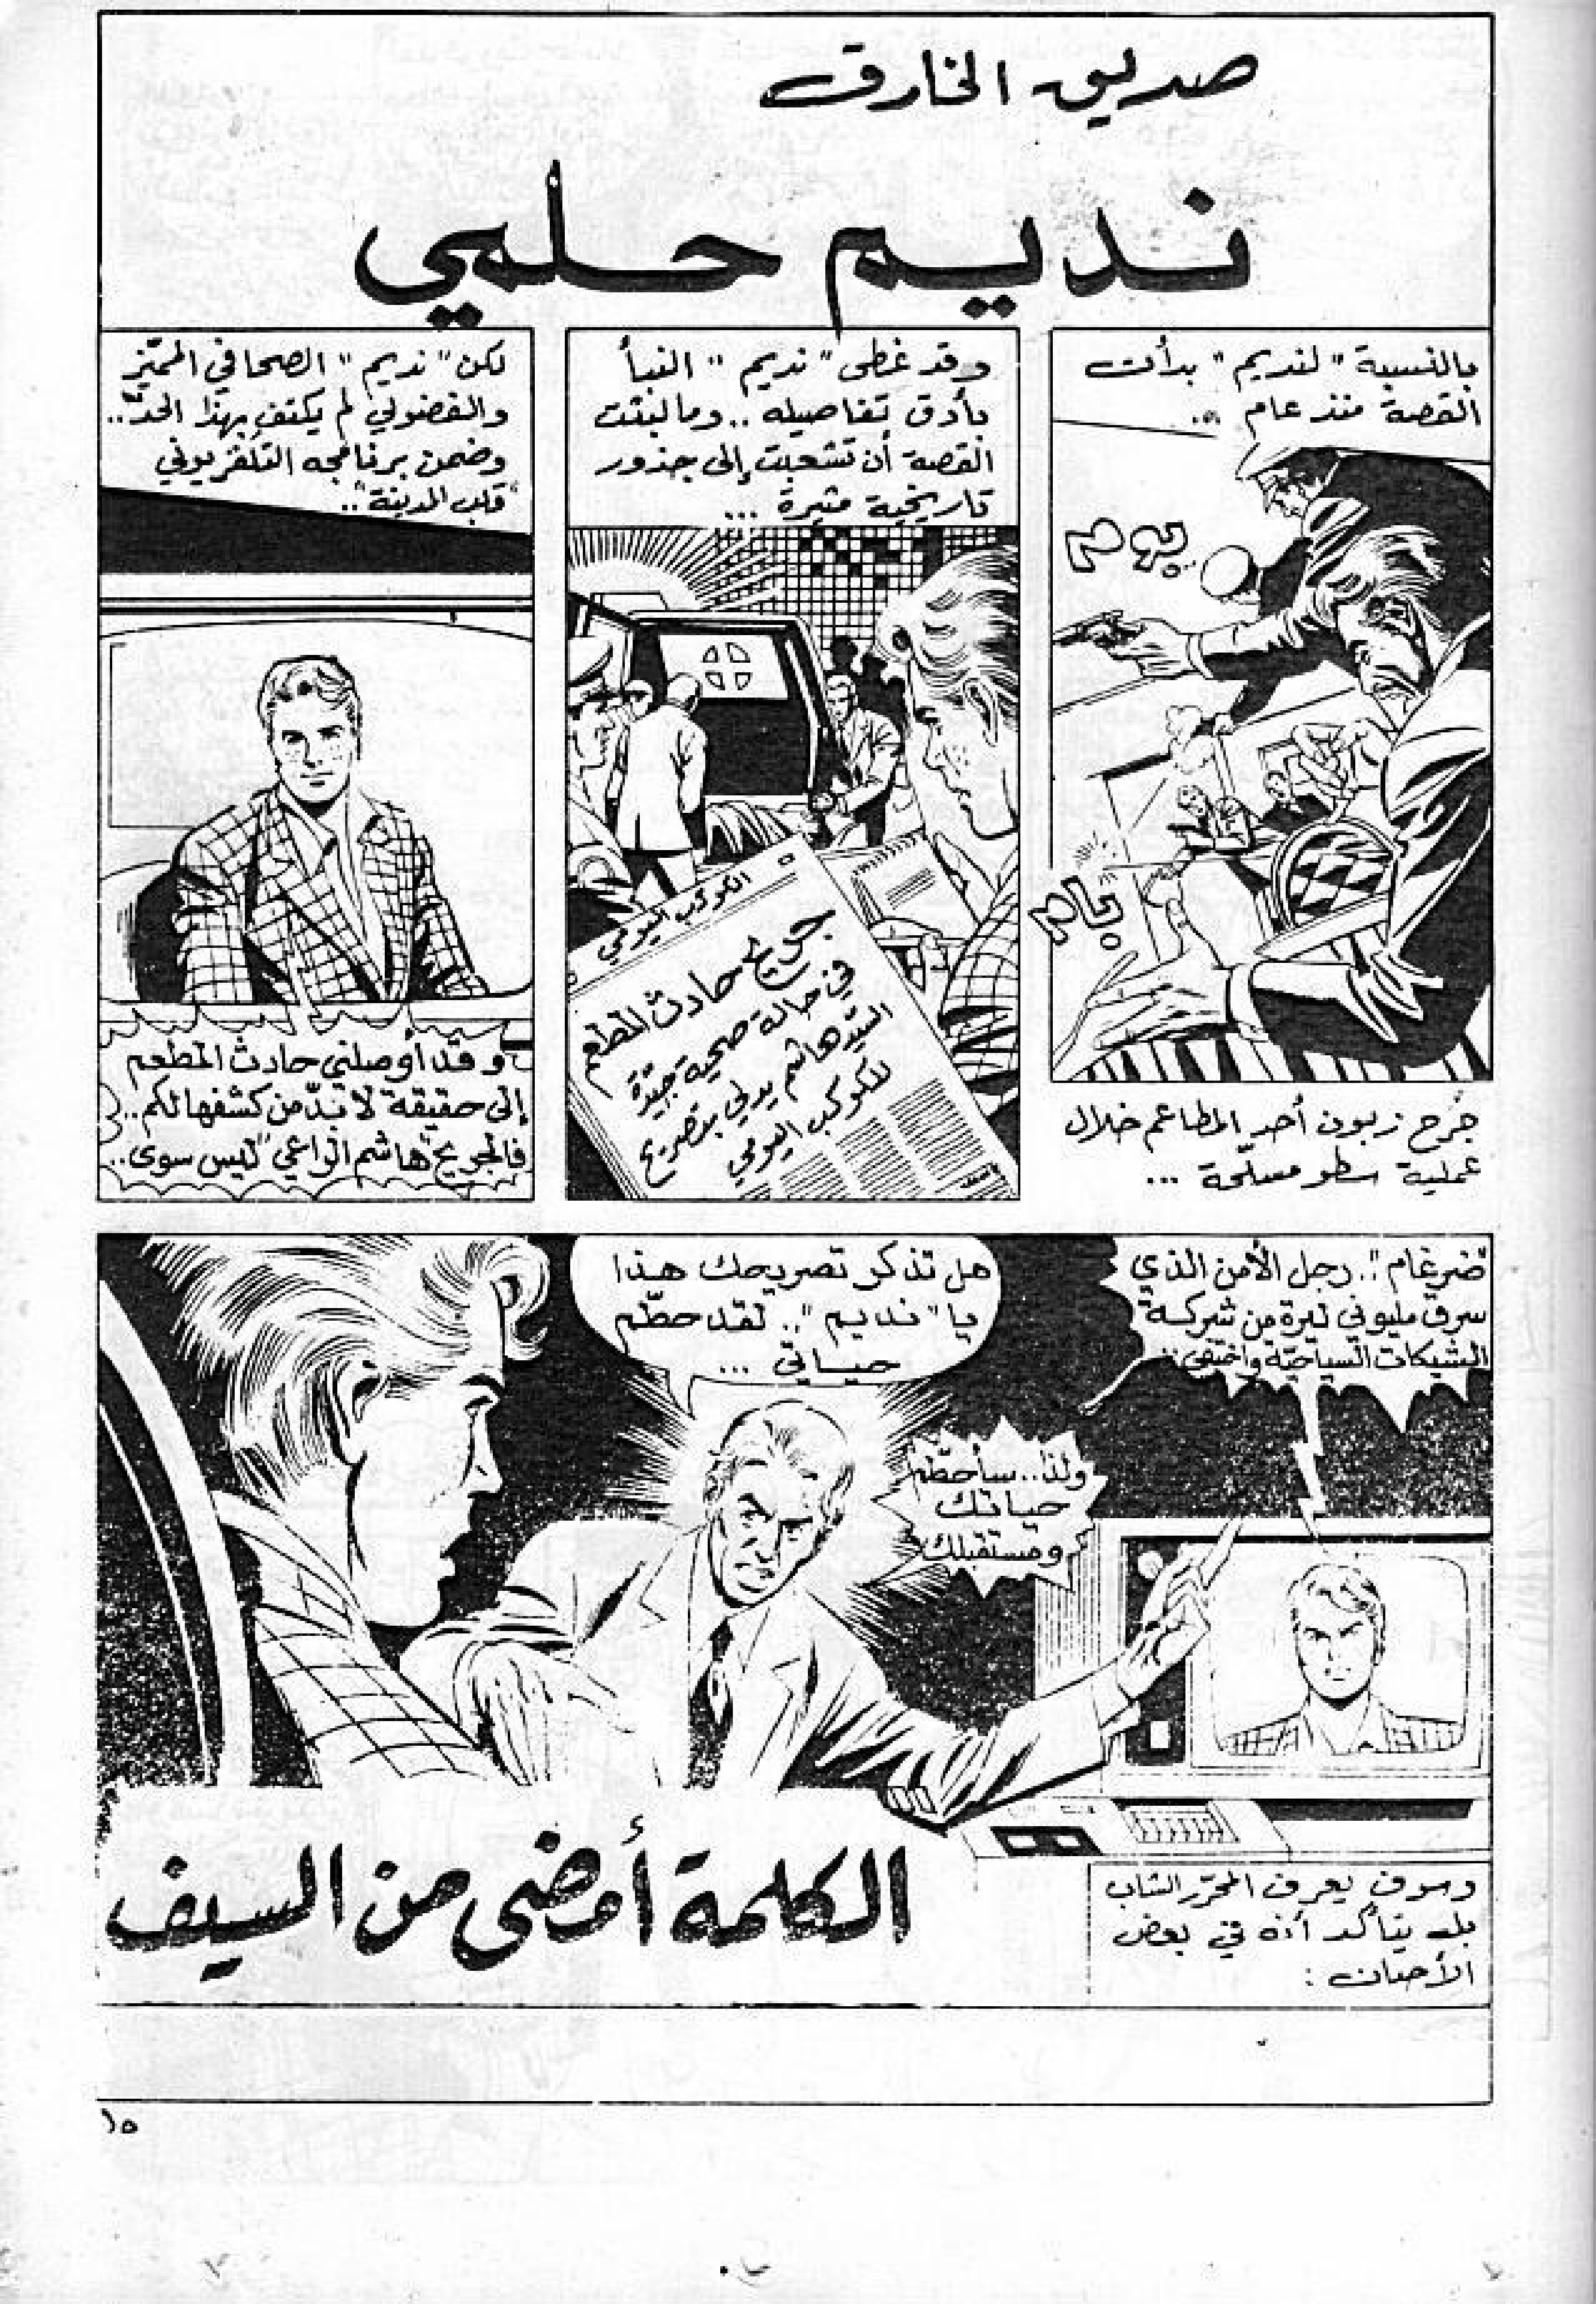 صديق الخارق
نديم حلمي
بالنسبة "لنديم" بدأت
القصة منذ عام ...
بوم
بام
جُرح زبون أحد المطاعم خلال
عملية سطو مسلّحة ...
وقد غطى "نديم" النبأ
بأدق تفاصيله .. وما لبثت
القصة أن تشعبت إلى جذور
تاريخية مثيرة ...
الكوكب اليومي
جريح حادث المطعم
في حالة صحية جيّدة
السيّد هاشم يدلي بتصريح
للكوكب اليومي
لكن "نديم" الصحافي المميّز
والفضولي لم يكتفِ بهذا الحدّ ..
وضمن برنامجه التلفزيوني
"قلب المدينة" ..
وقد أوصلني حادث المطعم
إلى حقيقة لا بدّ من كشفها لكم ..
فالجريح "هاشم الراعي" ليس سوى ..
"ضرغام" .. رجل الأمن الذي
سرق مليوني ليرة من شركة
الشيكات السياحيّة واختفى ..
هل تذكر تصريحك هذا
يا "نديم" .. لقد حطّم
حياتي ...
ولذا .. سأحطّم
حياتك
ومستقبلك
وسوف يعرف المحرّر الشاب
بل يتأكد أنه في بعض
الأحيان :
الكلمة أمضى من السيف
١٥